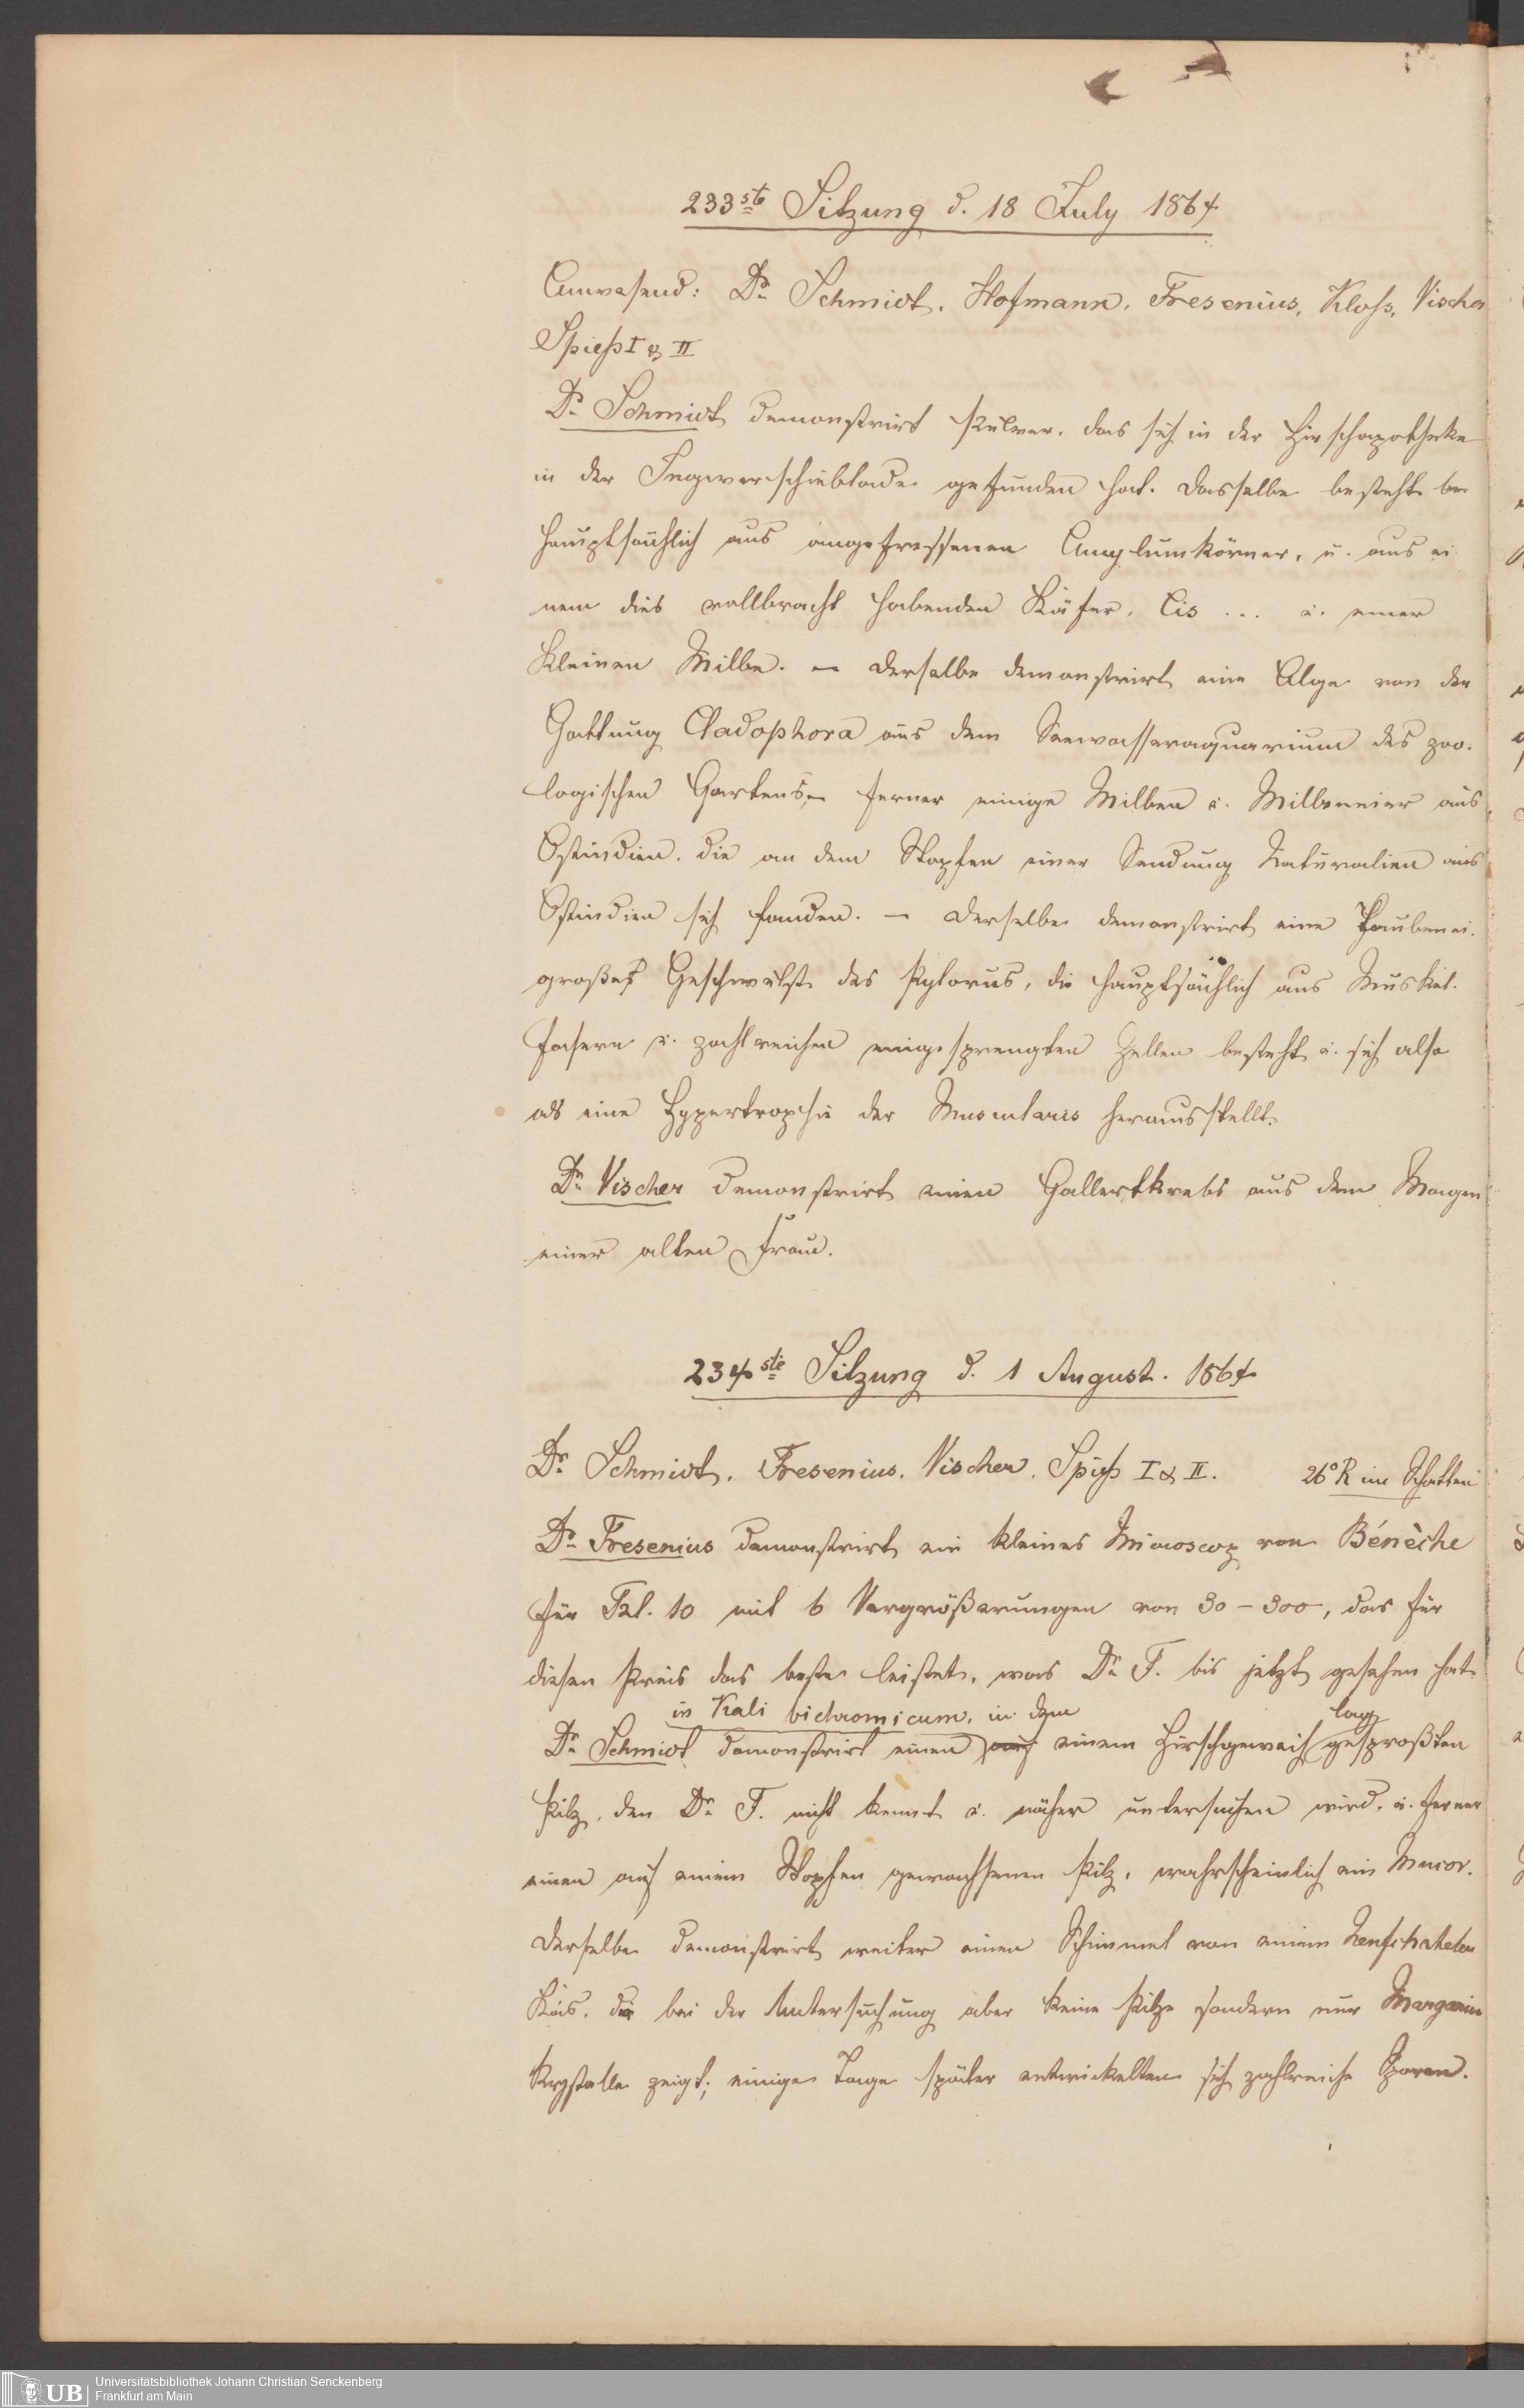 233ste Sitzung d. 18 July 1864
Anwesend: Dr Schmidt, Hofmann, Fresenius, Kloß, Vischer
Spieß I & II
Dr Schmidt demonstrirt Pulver, das sich in der Hirschapotheke
in der Ingwerschieblade gefunden hat. Dasselbe besteht
hauptsächlich aus angefressenen Amylumkörner, u. aus ei
nem dies vollbracht habenden Käfer, Cis ... u. einer
kleinen Milbe. – Derselbe demonstrirt eine Alge von der
Gattung Cladophora aus dem Seewasseraquarium des zoo-
logischen Gartens, – ferner einige Milben u. Milbeneier aus
Ostindien, die an dem Stopfen einer Sendung Naturalien aus
Ostindien sich fanden. – Derselbe demonstrirt eine Taubenei-
große Geschwulst des Pylorus, die hauptsächlich aus Muskel-
fasern u. zahlreichen eingesprengten Zellen besteht u. sich also
als eine Hypertrophie der Muscularis herausstellt.
Dr Vischer demonstrirt einen Gallertkrebs aus dem Magen
einer alten Frau.
234ste Sitzung d. 1 August. 1864
Dr Schmidt, Fresenius, Vischer, Spieß I & II. 26° R im Schatten
Dr Fresenius demonstrirt ein kleines Microscop von Bénèche
für Tal. 10 mit 6 Vergrößerungen von 30–300, das für
diesen Preis das beste leistet, was Dr F. bis jetzt gesehen hat.
in Kali bichromicum, in dem lag
Dr Schmidt demonstrirt einen auf einem Hirschgeweih gesproßten
Pilz, den Dr F. nicht kennt u. näher untersuchen wird, u. ferner
einen auf einem Stopfen gewachsenen Pilz, wahrscheinlich ein Mucor.
Derselbe demonstrirt weiter einen Schimmel von einem Neufchateler
Käs, die bei der Untersuchung aber keine Pilze sondern nur Margarin
krystalle zeigt; einige Tage später entwickelten sich zahlreiche Sporen.
Universitätsbibliothek Johann Christian Senckenberg
Frankfurt am Main
UB